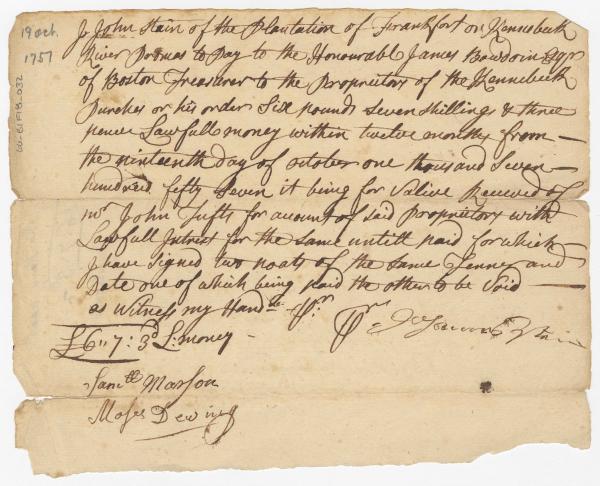 19 oct.
1757
66-61F18-032
J John Stain of the Plantation of Frankfort on Kennebeck
River Promes to Pay to the Honourabl James Bowdoin Esqr
of Boston Treasurer to the Proprietors of the Kennebeck
Purches or his order Six pounds Seven shillings & three
pence Lawfull money within twelve months from
the nineteenth day of october one thousand Seven
hundred fifty Seven it being for Valive Receved of
mr John Tufts for account of said proprietors with
Lawfull Intrest for the same untill paid for which
J have signed two noats of the Same Tenner and
Date one of which being paid the other to be Void
as witness my Hand
£6"7:3d L:money
Samll Marson
Moses Dewing